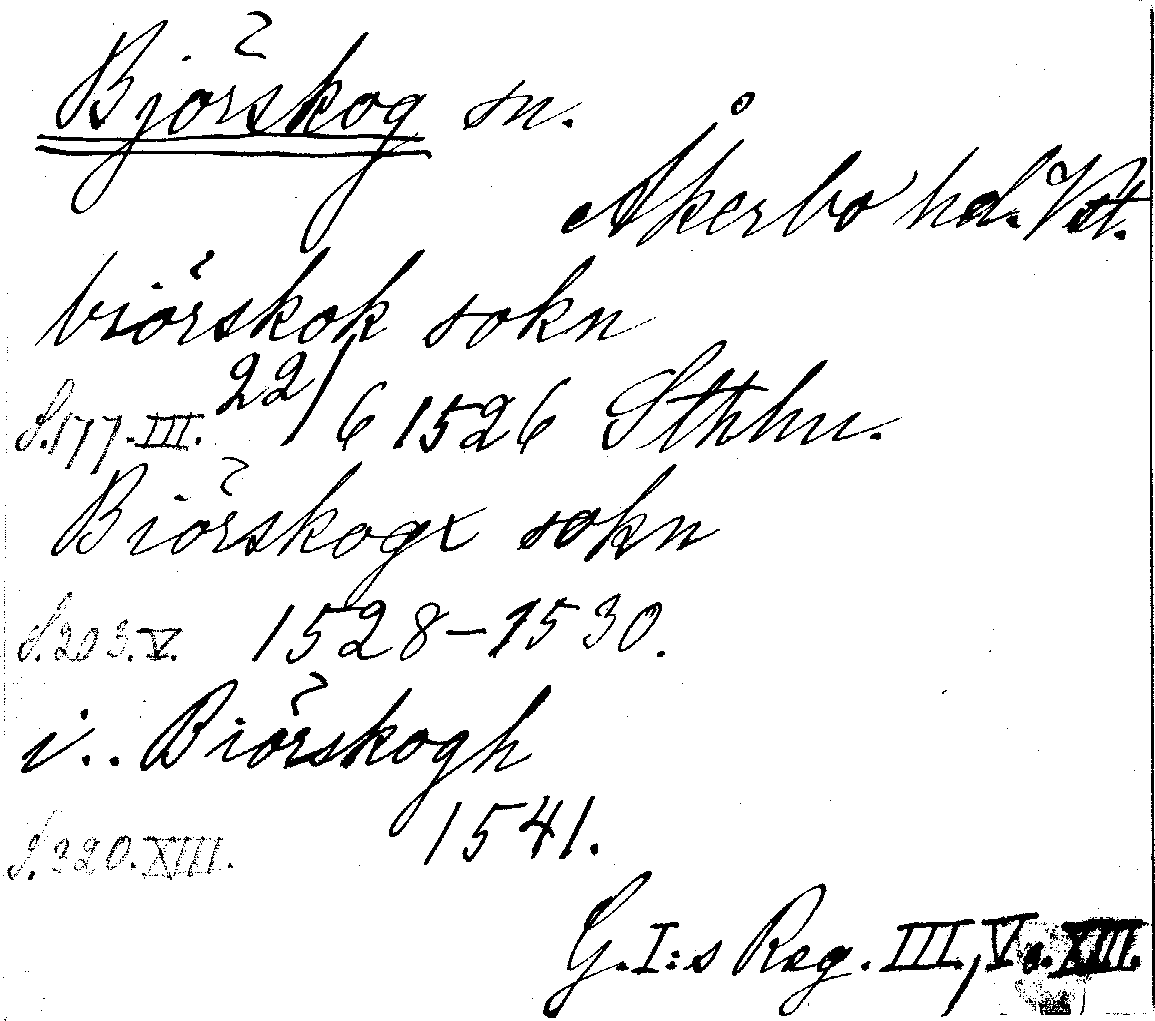 Björskog sn.
Åkerbo hd. Vstm.
biörskok sokn
S. 177. III. 22/6 1526 Sthlm.
Biörskogx sokn
S. 203. V. 1528–1530.
i .. Biörskogh
S. 220. XIII. 1541.
G. I:s Reg. III, V o. XIII.